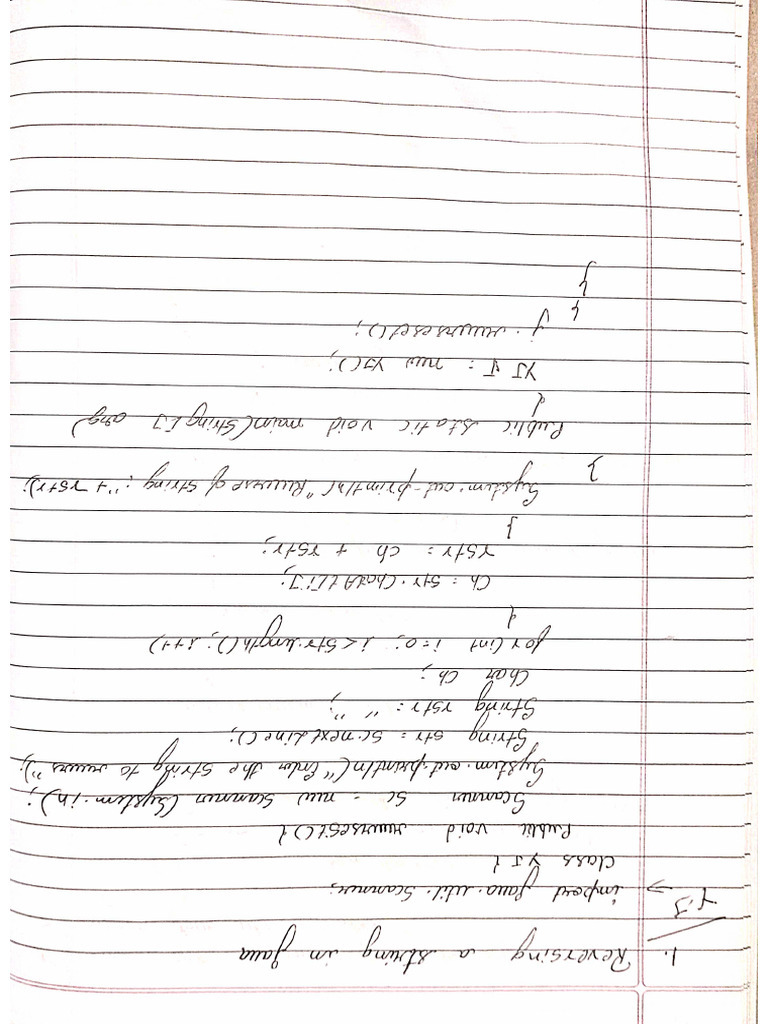 1. Reversing a string in java
→ import java.util.Scanner;
class YJ {
Public void reverseSt() {
Scanner sc = new Scanner (System.in);
System.out.println("Enter the String to reverse");
String str = sc.nextLine();
String rstr = " ";
Char Ch;
for(int i=0; i<str.length(); i++)
{
Ch = str.CharAt[i];
rstr = Ch + rstr;
}
System.out.println("Reverse of String :"+ rstr);
}
Public static void main(String[] args)
{
YJ J = new YJ();
j.reverseSt();
}
}